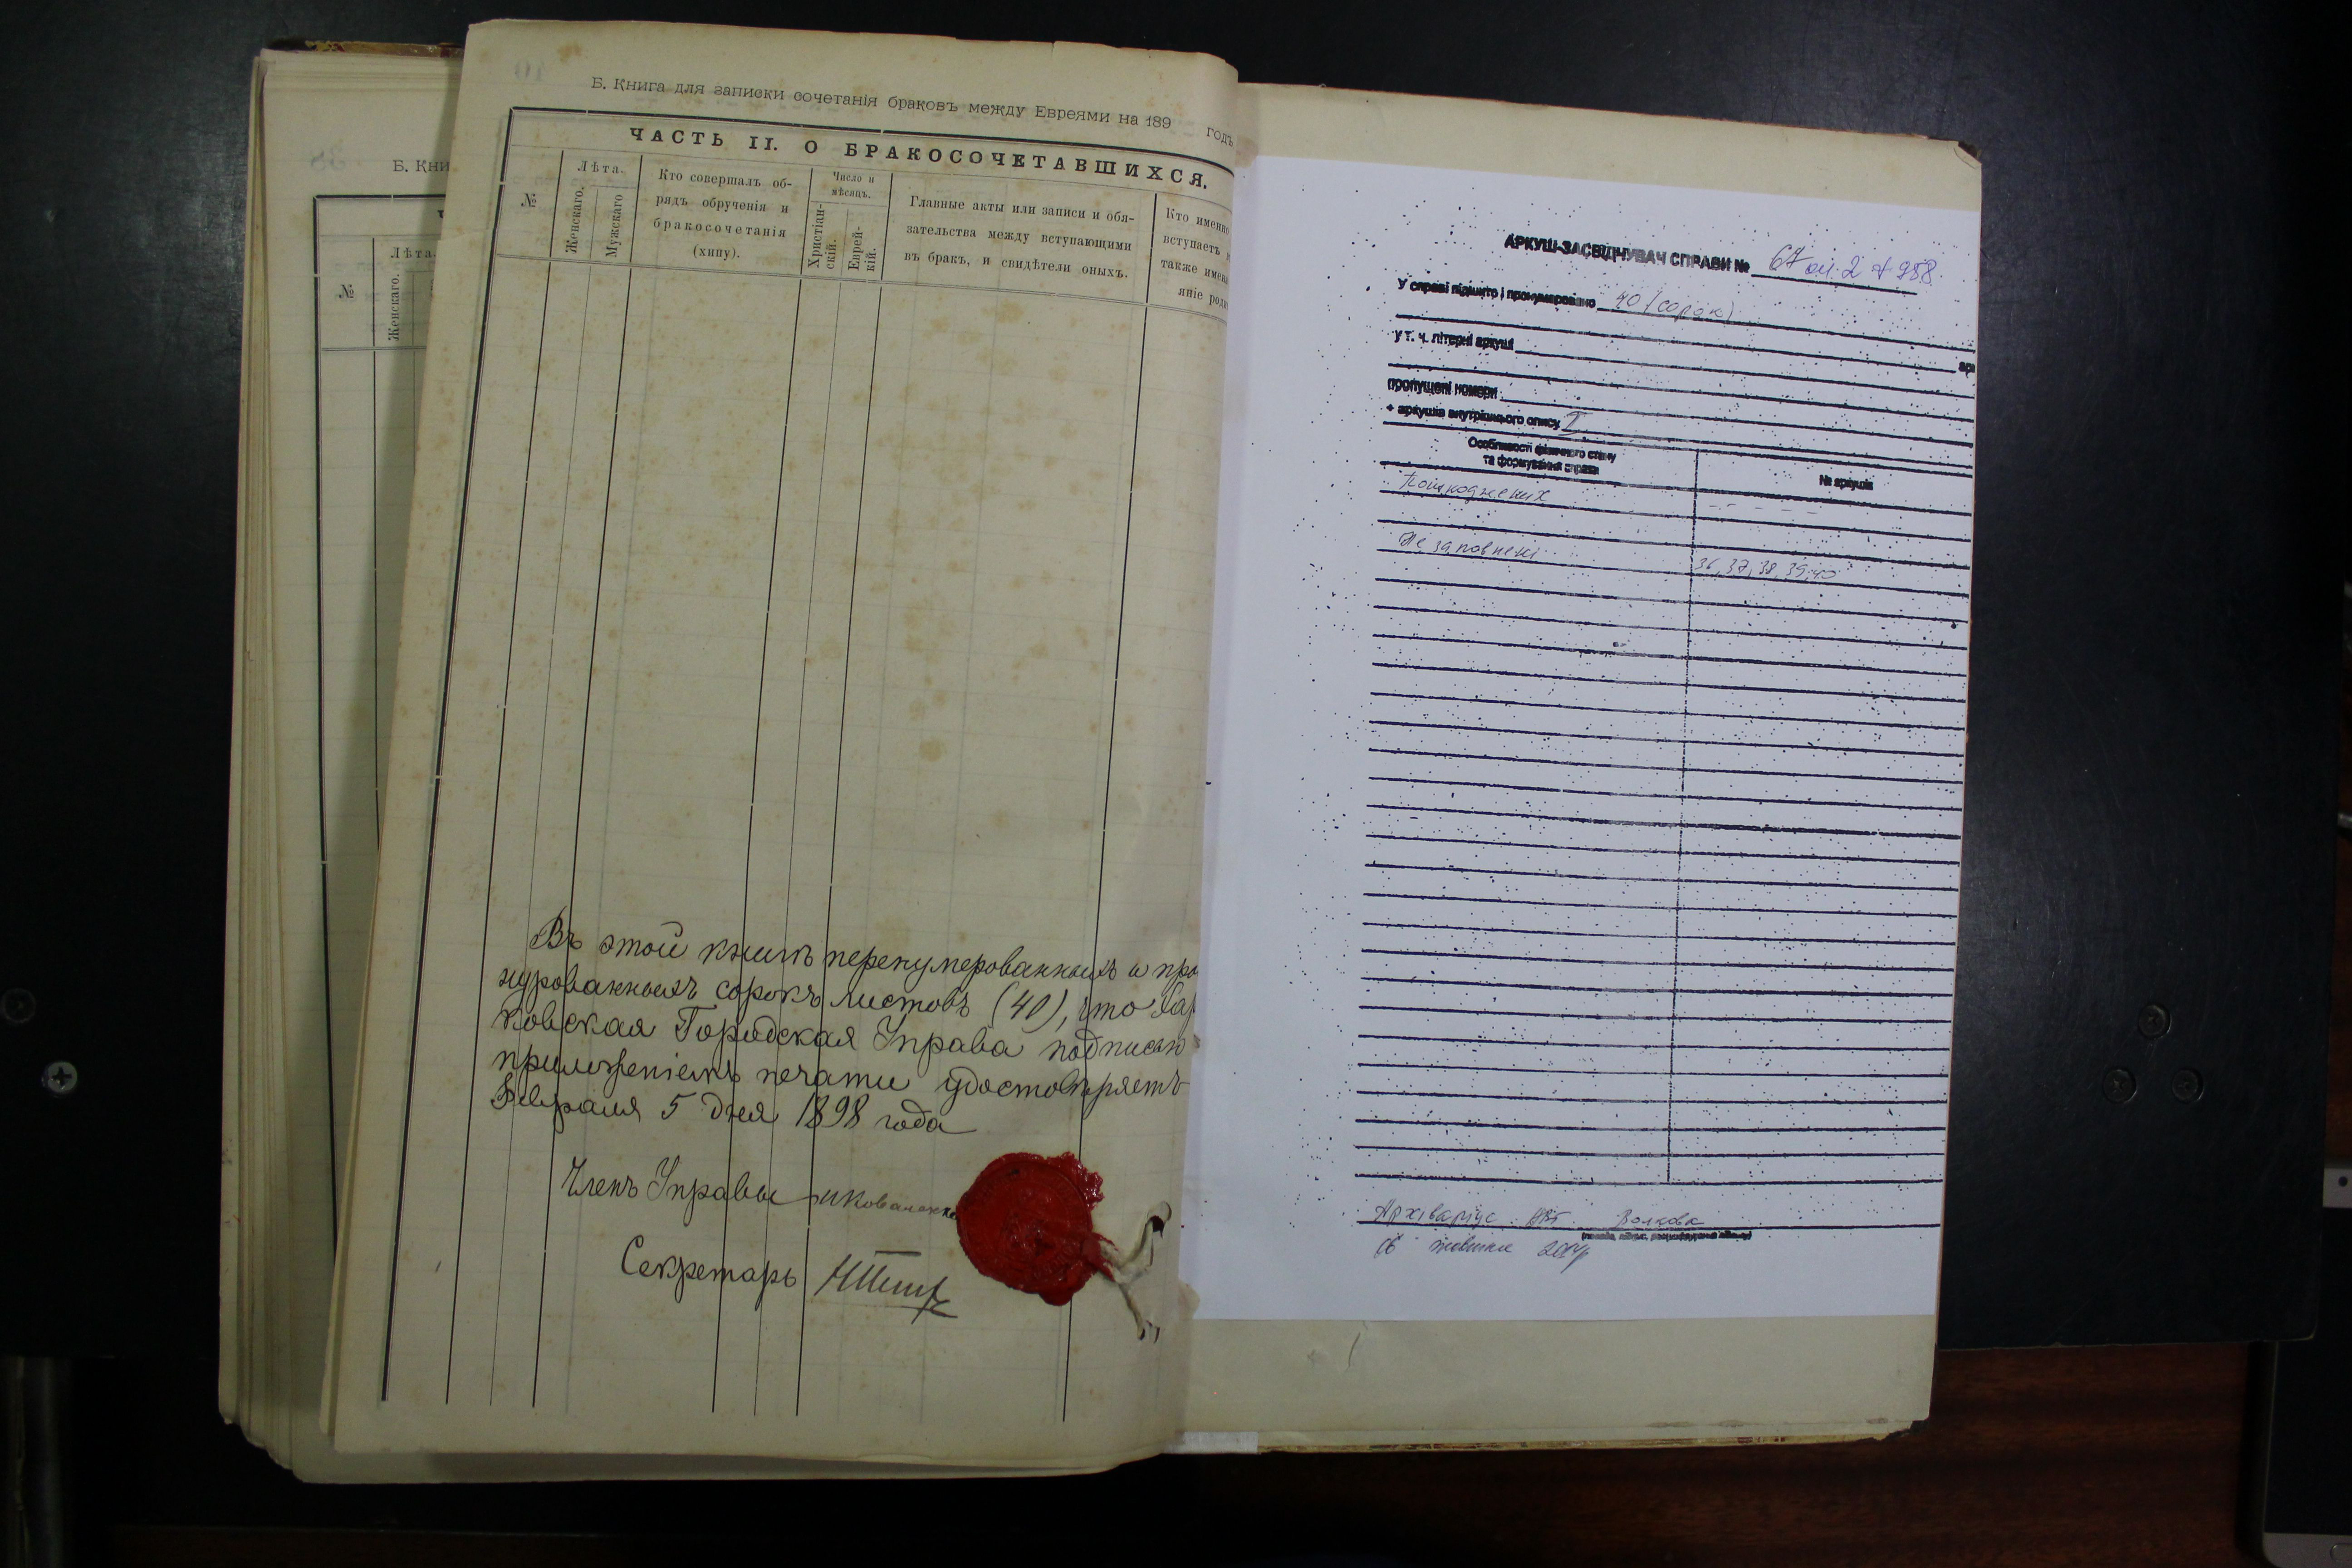 Б. Кни
№
Лѣта.
Женскаго.
Б. Книга для записки сочетанія браковъ между Евреями на 189 годъ
ЧАСТЬ II. О БРАКОСОЧЕТАВШИХСЯ.
№
Лѣта.
Женскаго.
Мужскаго
Кто совершалъ об-
рядъ обрученія и
бракосочетанія
(хипу).
Число и
мѣсяцъ.
Христіан-
скій.
Еврей-
кій.
Главные акты или записи и обя-
зательства между вступающими
въ бракъ, и свидѣтели оныхъ.
Кто именно
вступаетъ
также имена
яніе роди
Въ этой книгѣ перенумерованныхъ и про
нурованныхъ сорокъ листовъ (40), что Хар
ковская Городская Управа подписью
приложеніемъ печати удостовѣряетъ
Февраля 5 дня 1898 года
Членъ Управы
Секретарь
АРКУШ-ЗАСВІДЧУВАЧ СПРАВИ № 67 оп. 2 ф 958
У справі підшито і пронумеровано 40 (сорок)
арк
у т. ч. літерні аркуші
пропущені номери
+ аркушів внутрішнього опису
Особливості фізичного стану
та формування справи
№ аркушів
Пошкоджених
Не заповнені 36, 37, 38, 39, 40
Архіваріус Волкова